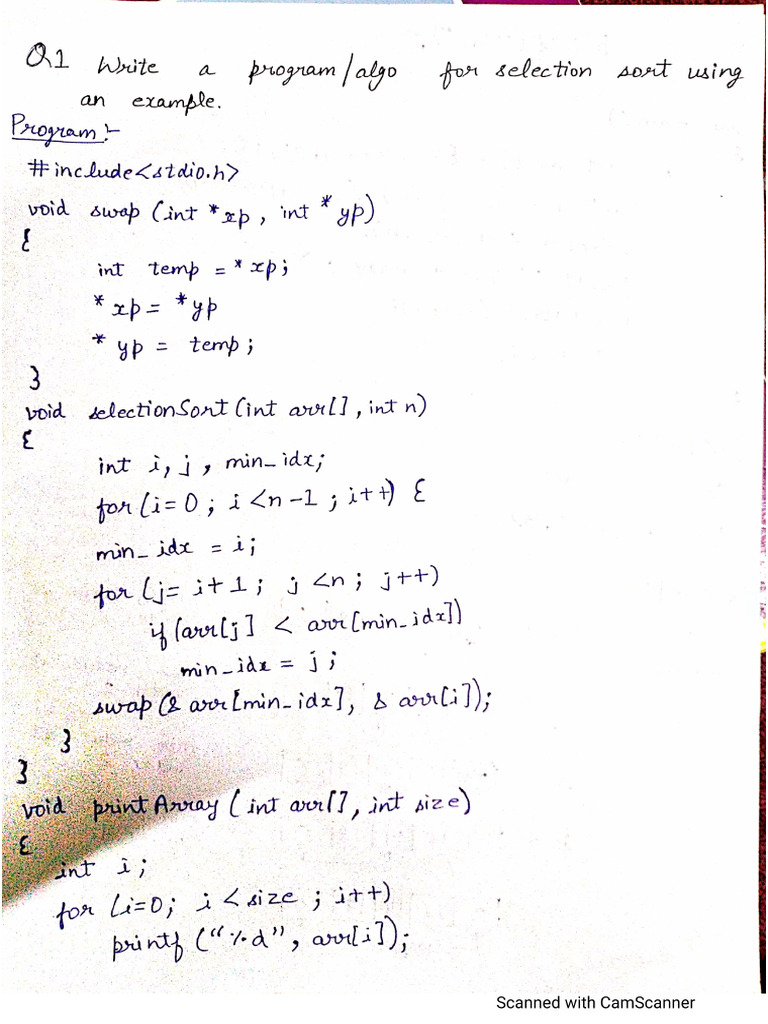 Q1 Write a program/algo for selection sort using
an example.
Program:-
#include<stdio.h>
void swap (int *xp, int *yp)
{
int temp = *xp;
*xp = *yp
*yp = temp;
}
void selectionSort(int arr[], int n)
{
int i, j, min_idx;
for (i=0; i<n-1; i++) {
min_idx = i;
for (j= i+1; j<n; j++)
if (arr[j] < arr[min_idx])
min_idx = j;
swap (& arr[min_idx], & arr[i]);
}
}
void printArray (int arr[], int size)
{
int i;
for (i=0; i<size; i++)
printf ("%d", arr[i]);
Scanned with CamScanner